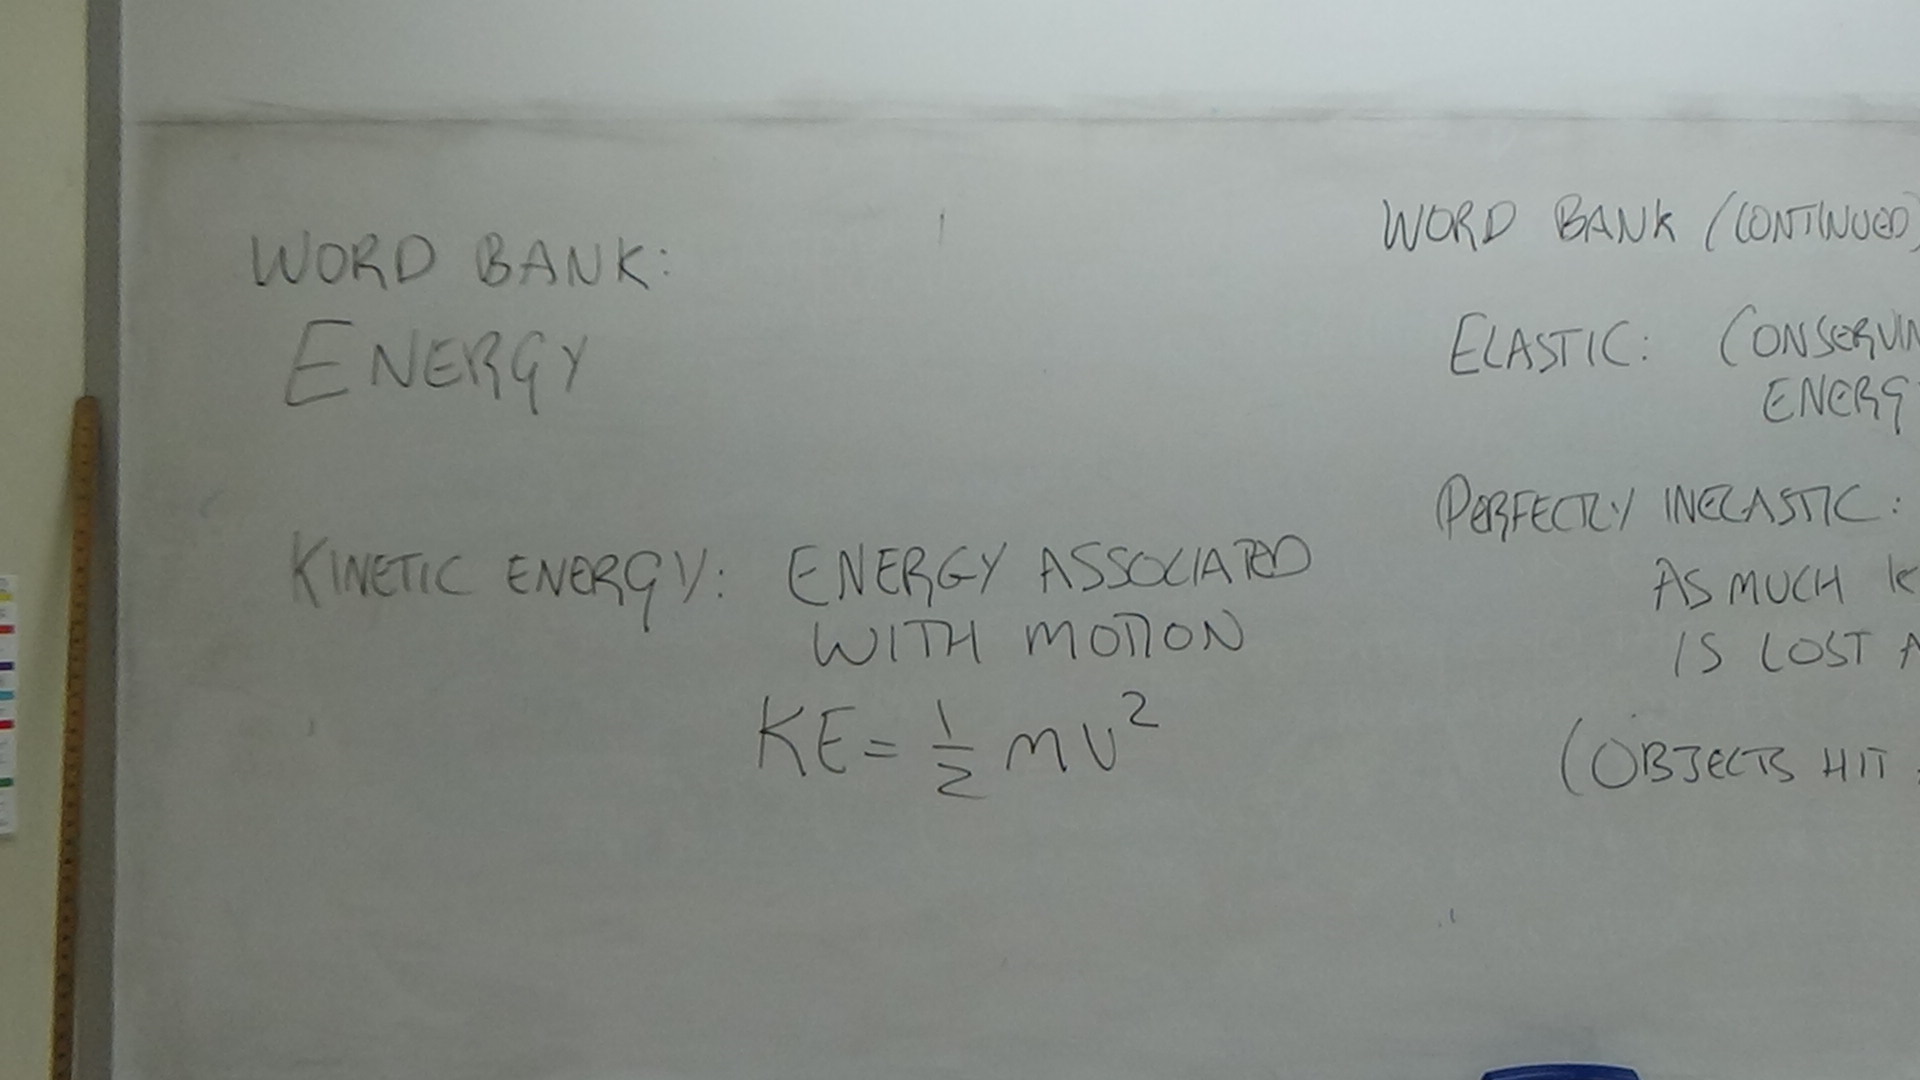 WORD BANK:
ENERGY
KINETIC ENERGY: ENERGY ASSOCIATED
WITH MOTION
KE = 1/2 mv²
WORD BANK (CONTINUED)
ELASTIC: CONSERVIN
ENERG
PERFECTLY INELASTIC:
AS MUCH K
IS LOST A
(OBJECTS HIT